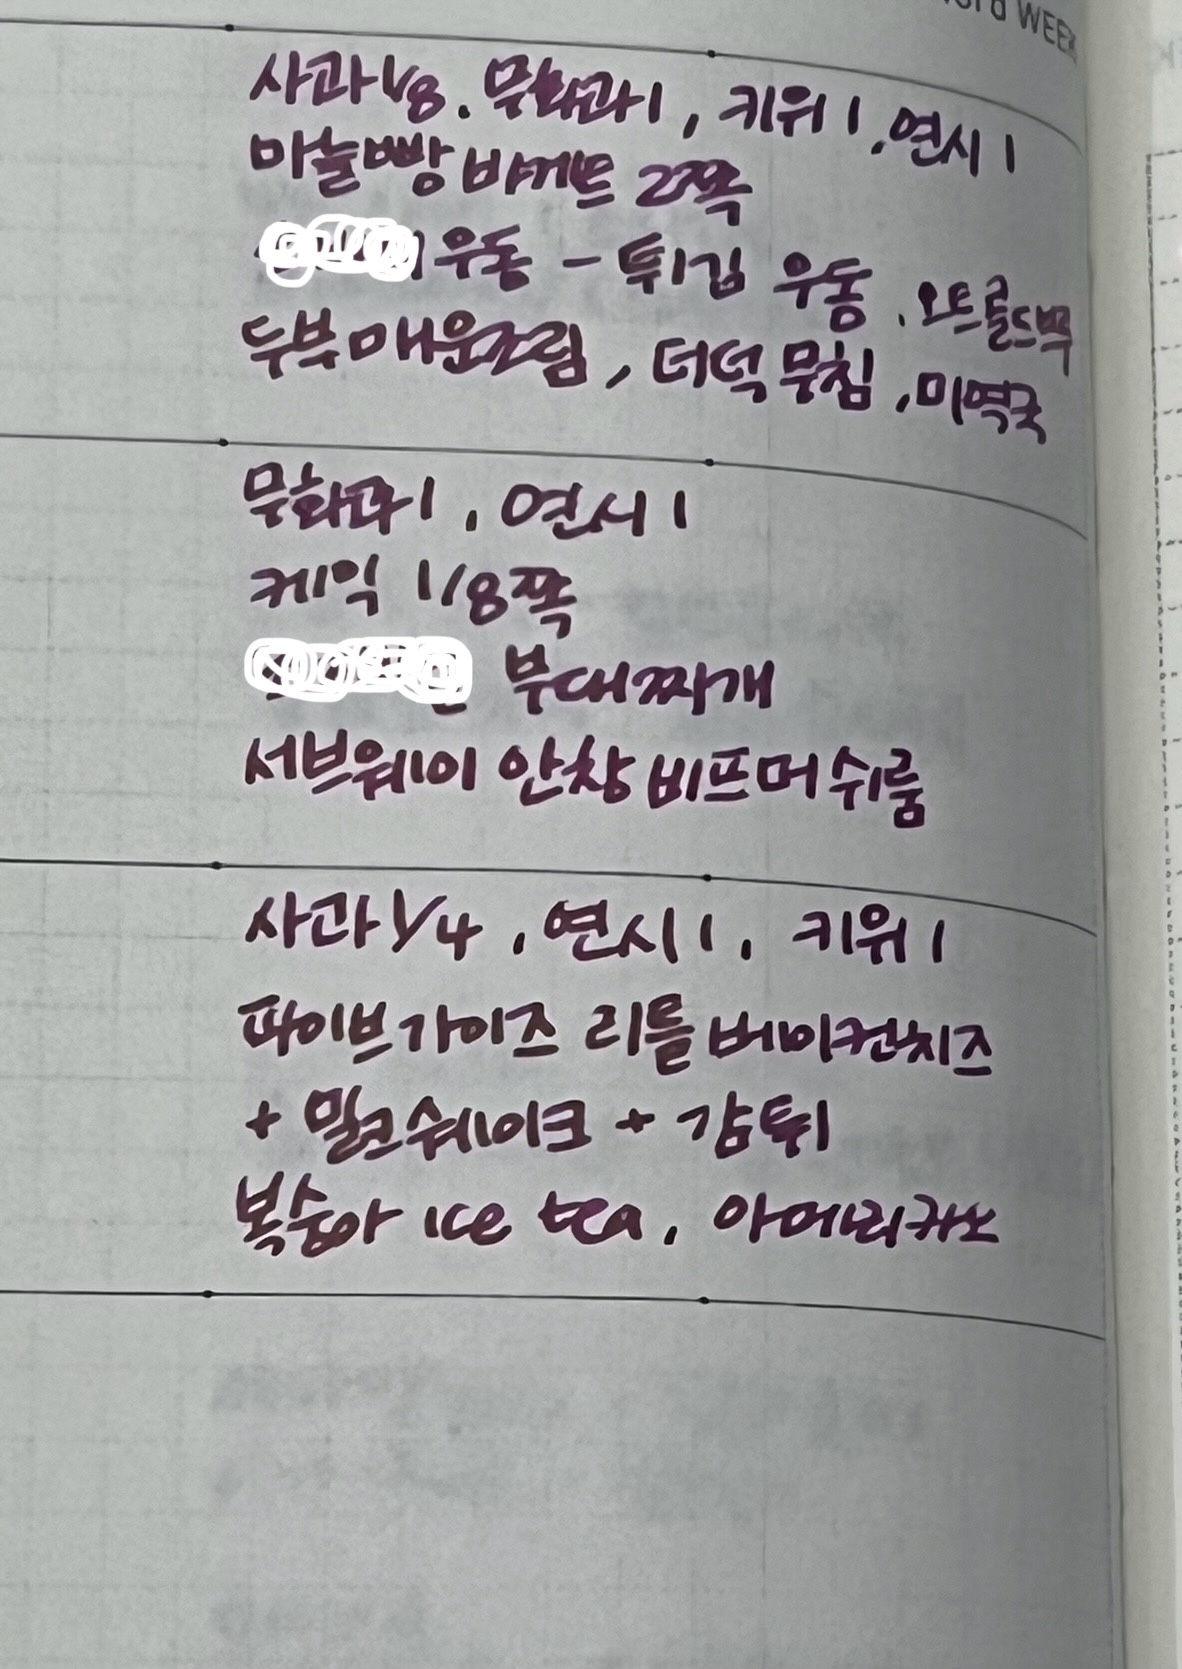 WEEK
사과 1/8, 무화과 1, 키위 1, 연시 1
마늘빵 바게트 2쪽
우동 - 튀김 우동, 오트콜드브루
두부매운조림, 더덕무침, 미역국
무화과 1, 연시 1
케익 1/8쪽
부대찌개
서브웨이 안창 비프머쉬룸
사과 1/4, 연시 1, 키위 1
파이브가이즈 리틀 베이컨치즈
+ 밀크쉐이크 + 감튀
복숭아 ice tea, 아메리카노